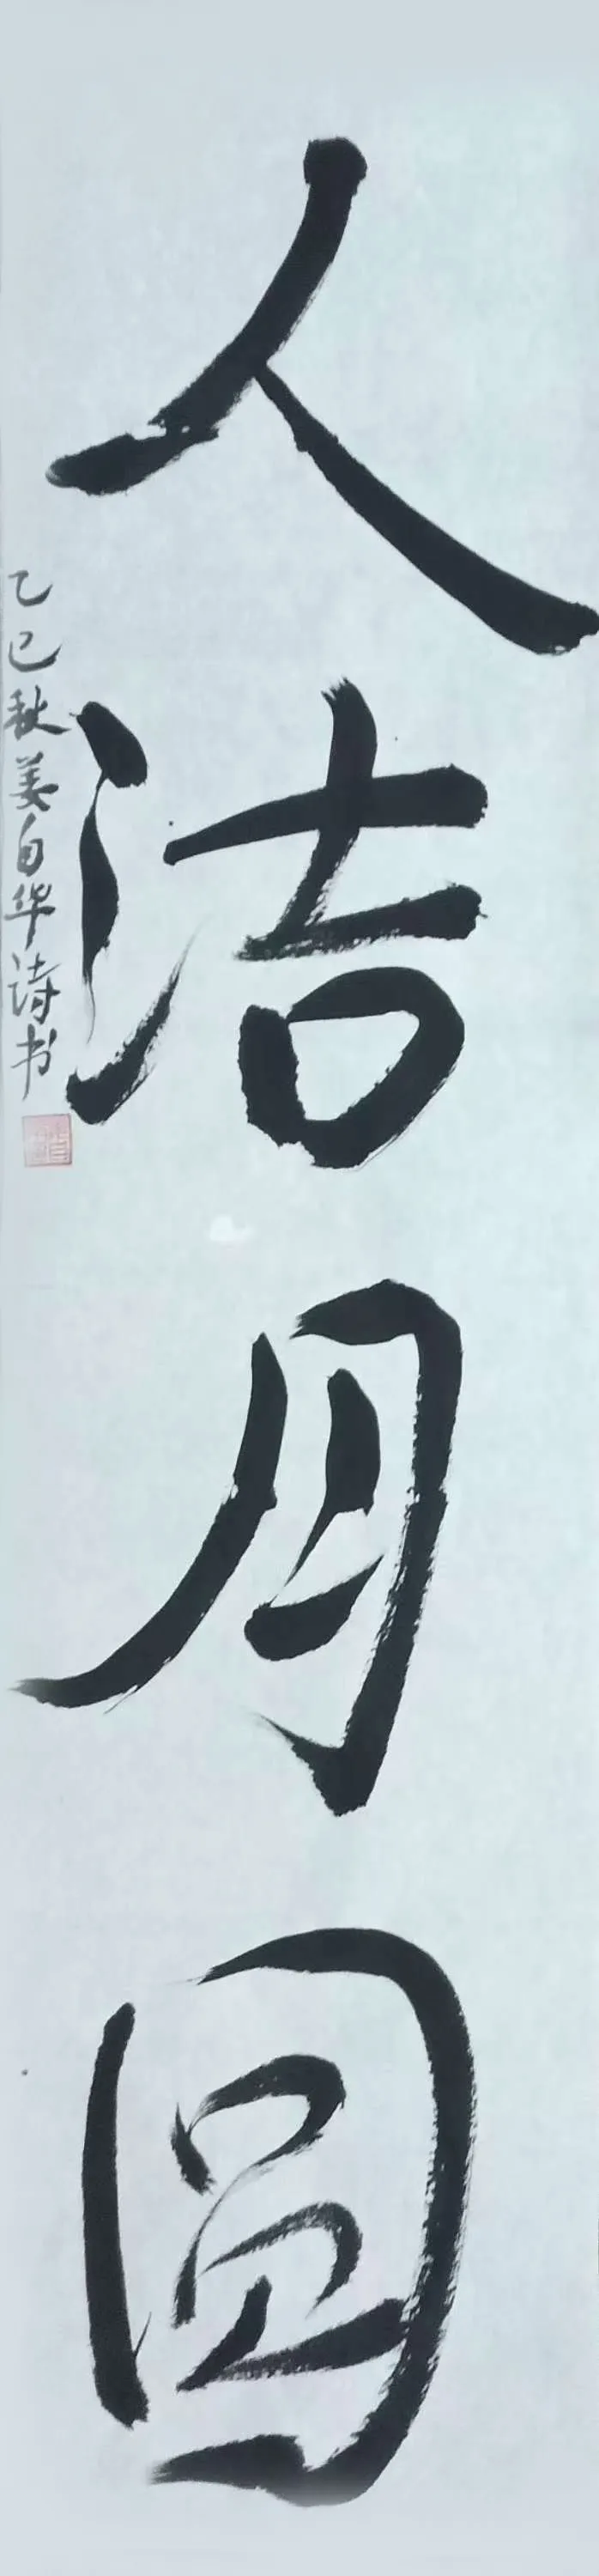 人洁月圆
乙巳秋姜自华诗书